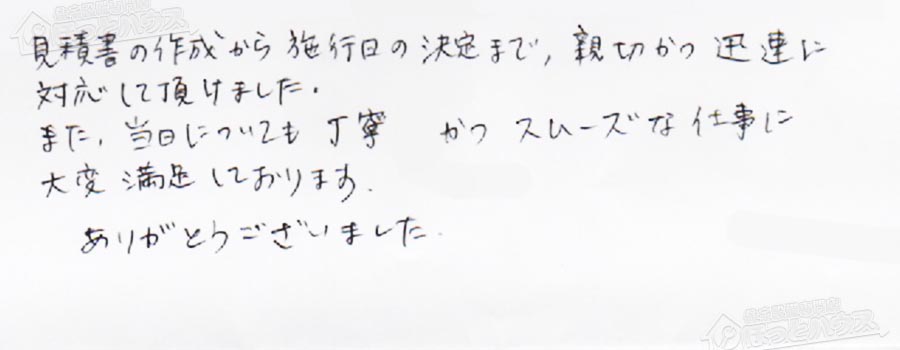 見積書の作成から施行日の決定まで、親切かつ迅速に
対応して頂けました。
また、当日についても丁寧 かつ スムーズな仕事に
大変満足しております。
ありがとうございました。
ほっとハウス